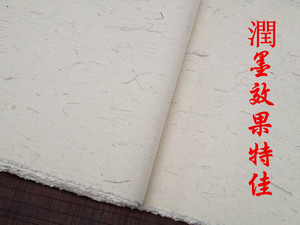 潤墨效果特佳